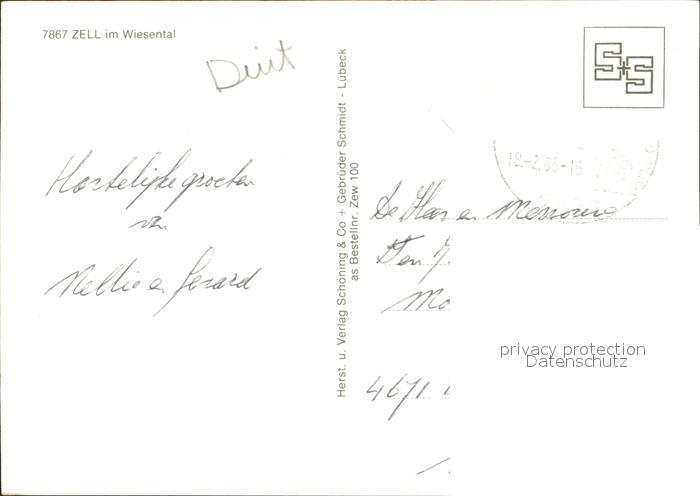 7867 ZELL im Wiesental
Duit
S+S
18.-2.86-16
Hartelijke groeten
van
Nellie en Gerard
Herst. u. Verlag Schöning & Co + Gebrüder Schmidt - Lübeck
as Bestellnr. Zew 100
De Heer en Mevrouw
Den
4671
privacy protection
Datenschutz